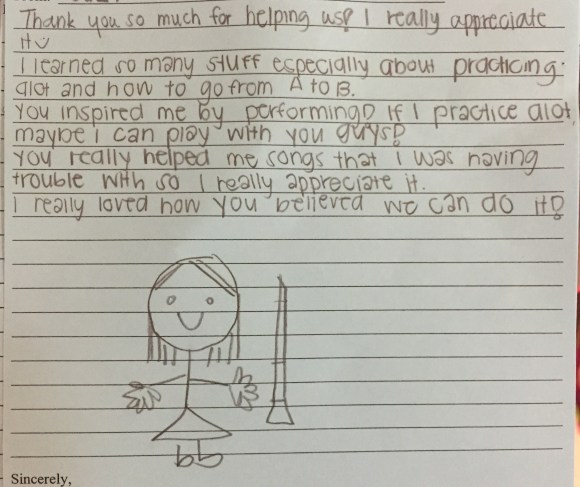 Thank you so much for helping us! I really appreciate
it
I learned so many stuff especially about practicing
alot and how to go from A to B.
You inspired me by performing! If I practice alot,
maybe I can play with you guys!
You really helped me songs that I was having
trouble with so I really appreciate it.
I really loved how you believed we can do it!
Sincerely,